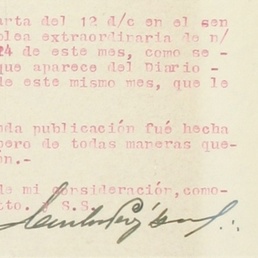 arta del 12 d/c en el sen
blea extraordinaria de n/
24 de este mes, como se -
que aparece del Diario -
de este mismo mes, que le
nda publicación fué hecha
pero de todas maneras que-
ón.-
de mi consideración,como-
tto. y S.S.